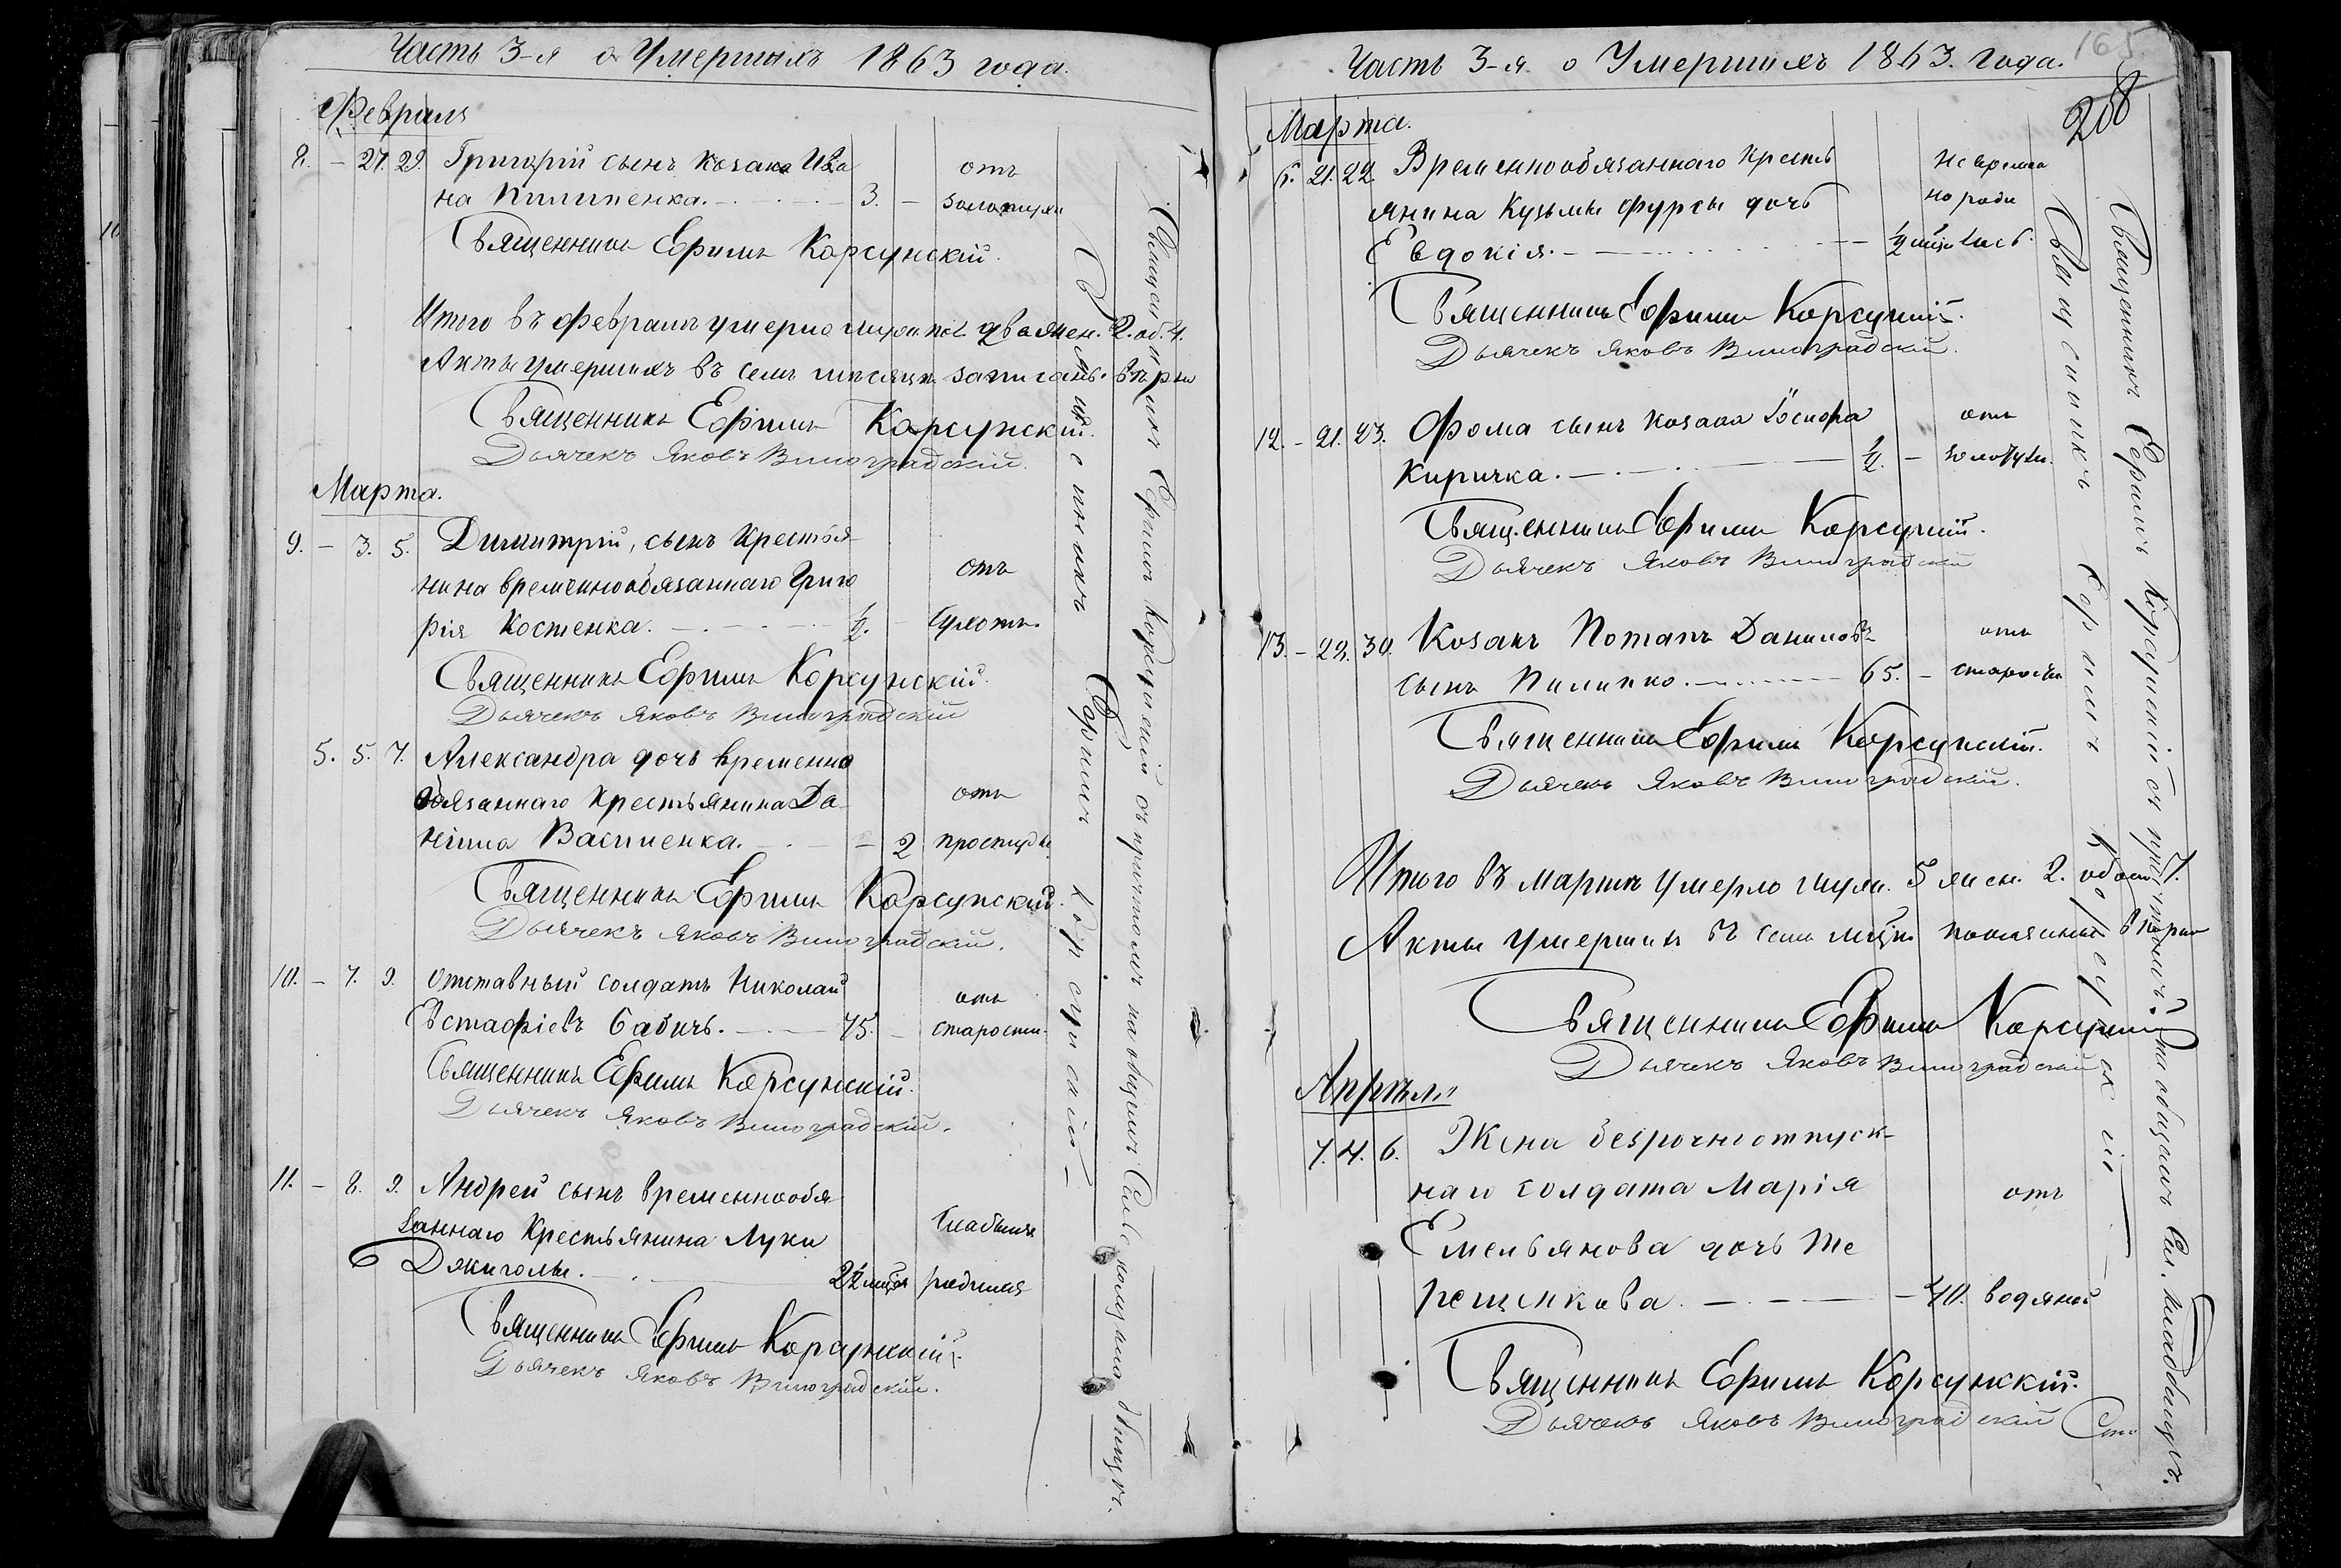 Часть 3-я о Умершихъ 1863 года.
Февраля
8. - 27. 29. Григорій сынъ козака Ива
на Пилипенка. 3. - отъ золотухи
Священникъ Ефимъ Корсунскій.
Итого въ Февралѣ умерло муж. пол. два жен. 2. об. 4.
Акты умершихъ въ семъ мѣсяцѣ записаны вѣрно
Священникъ Ефимъ Корсунскій.
Дьячекъ Яковъ Виноградскій.
Марта.
9. - 3. 5. Димитрій, сынъ Крестья-
нина временнообязаннаго Григо
рія Костенка. ½. отъ Сухотъ.
Священникъ Ефимъ Корсунскій.
Дьячекъ Яковъ Виноградскій
5. 5. 7. Александра дочь временно
обязаннаго Крестьянина Да-
ніила Василенка. - 2 отъ простуды
Священникъ Ефимъ Корсунскій.
Дьячекъ Яковъ Виноградскій.
10. - 7. 9. Отставный солдатъ Николай
Евстафіевъ Бабичь. 75. - отъ старости.
Священникъ Ефимъ Корсунскій.
Дьячекъ Яковъ Виноградскій.
11. - 8. 9. Андрей сынъ временнообя
заннаго Крестьянина Луки
Слабымъ родился
Священникъ Ефимъ Корсунскій.
Дьячекъ Яковъ Виноградскій.
Священникъ Ефимъ Корсунскій съ причтомъ
Священникъ Ефимъ Корсунскій
Часть 3-я о Умершихъ 1863. Года.
165
208
Марта.
6. 21. 22. Временнообязаннаго Кресть
янина Кузьмы Фурсы дочь
Евдокія. ½
Священникъ Ефимъ Корсунскій.
Дьячекъ Яковъ Виноградскій.
12. - 21. 23. Фома сынъ козака
Киричка. ½. - отъ золотухи.
Священникъ Ефимъ Корсунскій.
Дьячекъ Яковъ Виноградскій
13. - 29. 30. Козакъ Потапъ Даниловъ
сынъ Пилипко. 65. - отъ старости
Священникъ Ефимъ Корсунскій.
Дьячекъ Яковъ Виноградскій.
Итого въ Мартѣ умерло муж. 5 жен. 2. обоего 7.
Акты умершихъ въ семъ вѣрно
Священникъ Ефимъ Корсунскій
Дьячекъ Яковъ Виноградскій
Апрѣля
7. 4. 6. Жена безрочноотпуск-
наго солдата Марія
Емельянова дочь Те
рещенкова. - 40. отъ водяной
Священникъ Ефимъ Корсунскій.
Дьячекъ Яковъ Виноградскій
Священникъ Ефимъ Корсунскій
Священникъ Ефимъ Корсунскій съ причтомъ